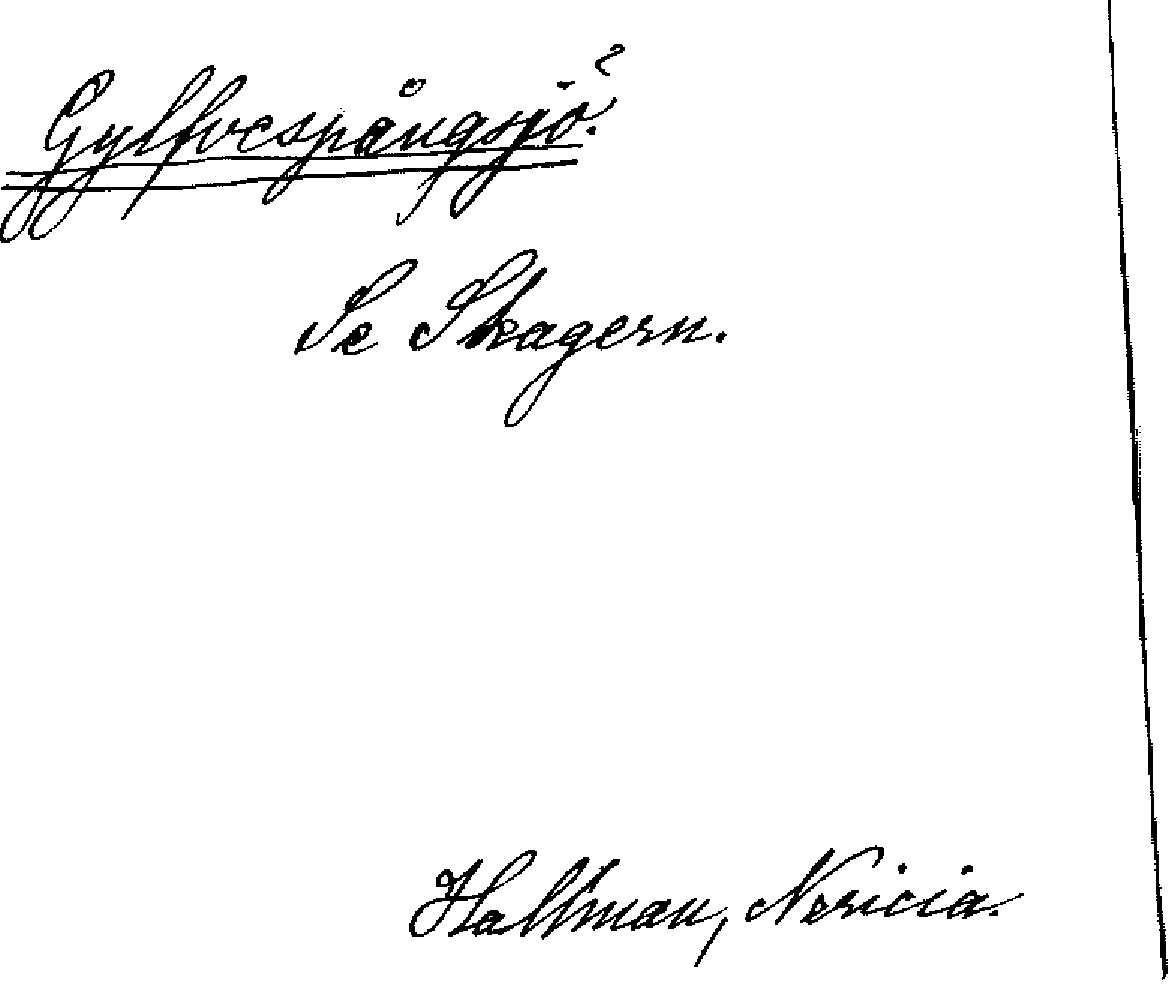 Gylfvespångsjö?
Se Skagern.
Hallman, Nericia.